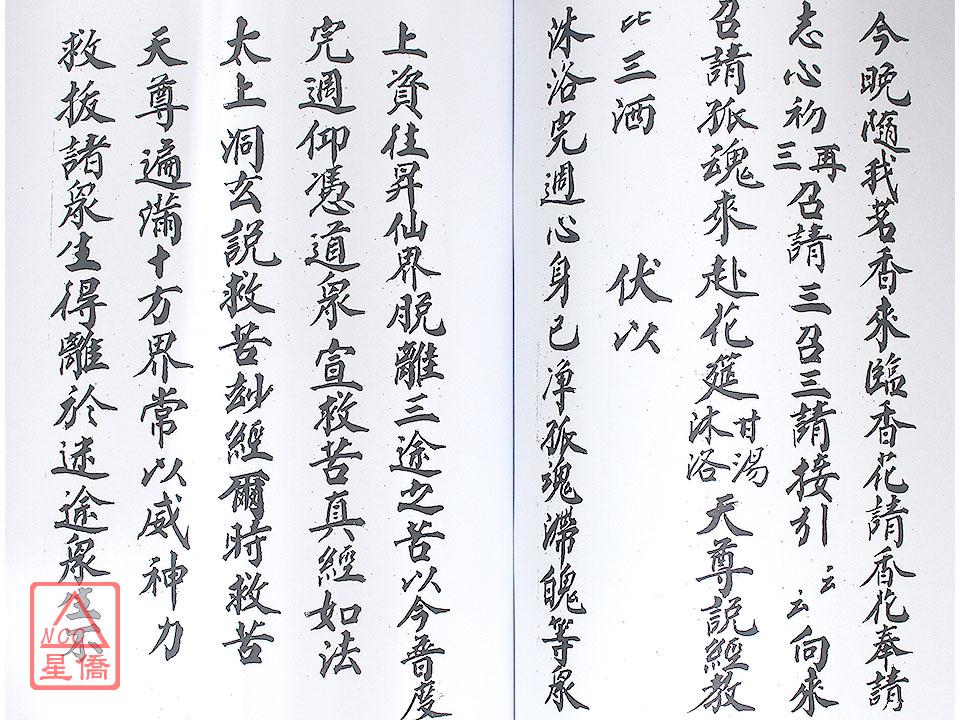 今晚隨我茗香來臨香花請香花奉請
志心初再三召請三召三請接引云云向來
召請孤魂來赴花筵甘湯沐洛天尊說經教
比三酒 伏以
沐浴完週心身已淨孤魂滯魄等众
上資往昇仙界脫離三途之苦以今普度
完週仰憑道眾宣救苦真經如法
太上洞玄說救苦妙經爾時救苦
天尊遍滿十方界常以威神力
救拔諸眾生得離於迷途眾生不
NCC
星僑